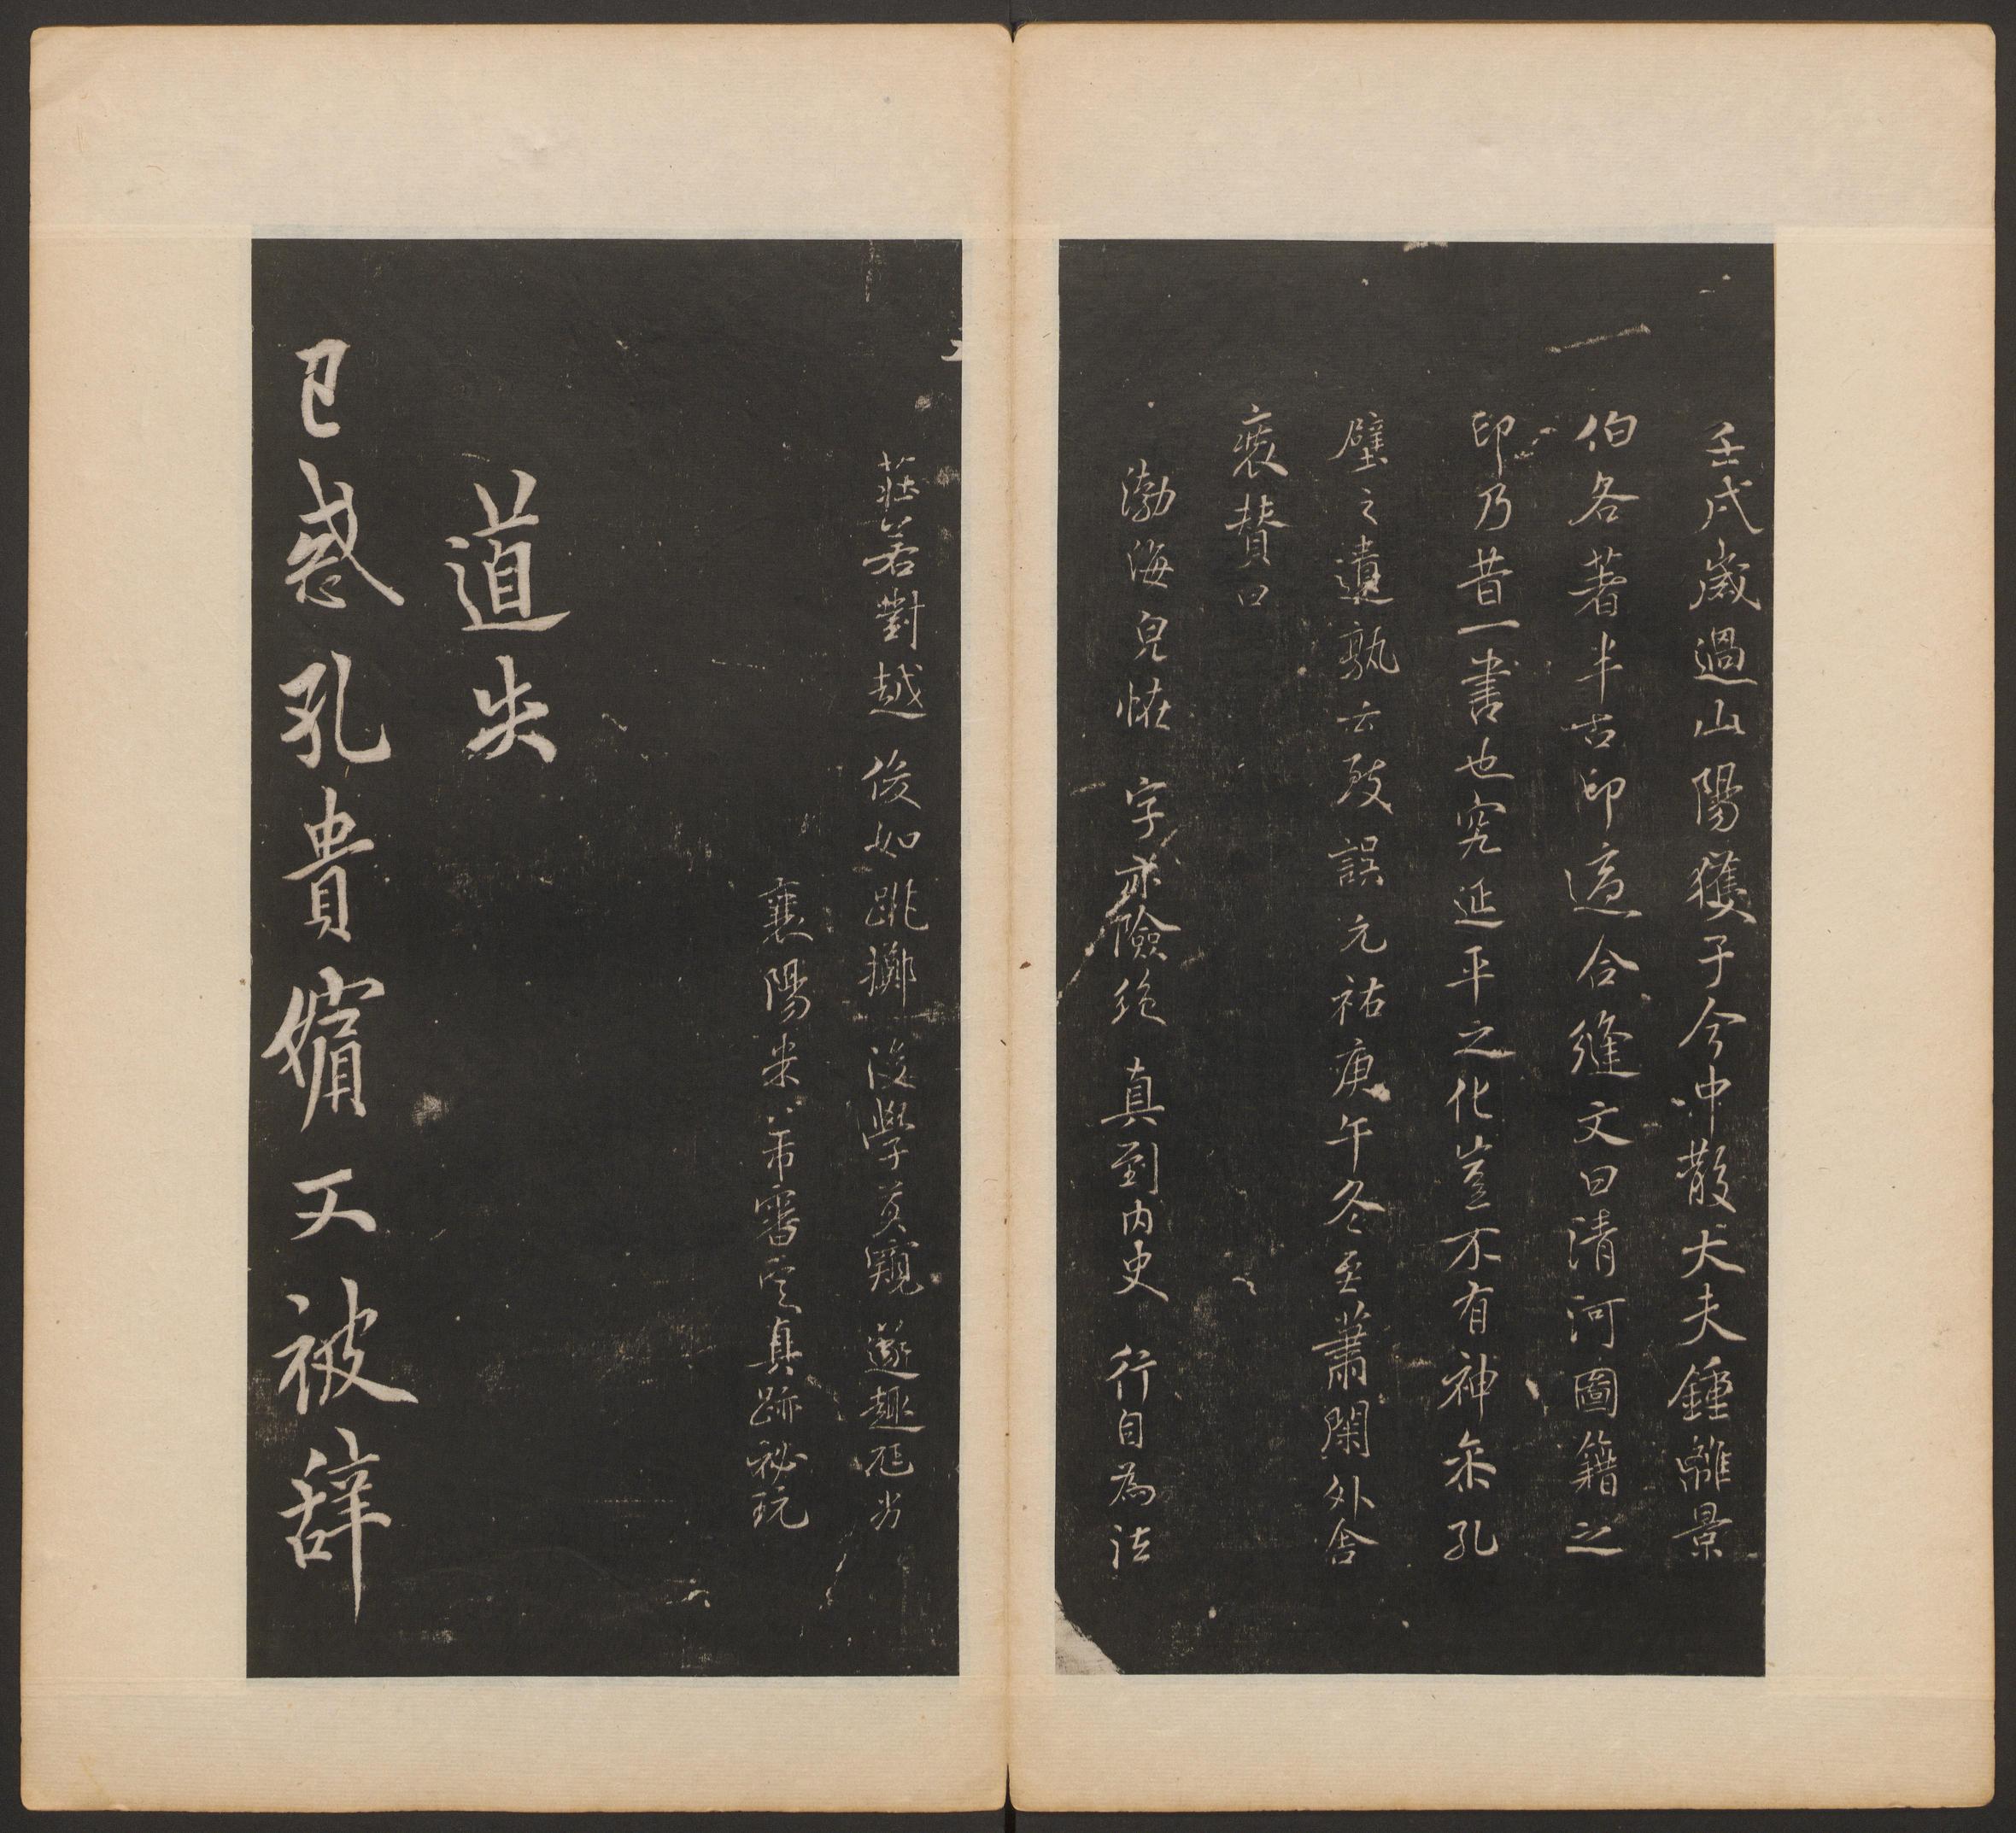 壬戌歲過山陽獲于今中散大夫鍾離景
伯各著半古印適合縫文曰清河圖籍之
印乃昔一書也究延平之化豈不有神采孔
壁之遺孰云致誤元祐庚午冬至蕭閑外舍
裝贊曰
渤海皃恠 字亦險絶 真到內史 行自為法
莊若對越 俊如跳擲 後學莫窺 遂趣尫劣
襄陽米芾審定真跡祕玩
道失
已惑孔貴嬪又被辭